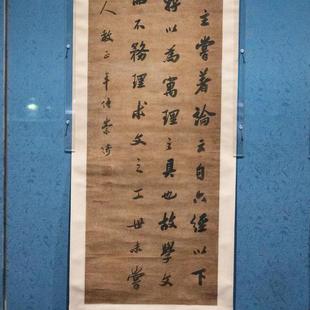 主嘗著論云自六經以下
將以為寓理之具也故學文
而不務理求文之工世未嘗
人教正年侍崇綺